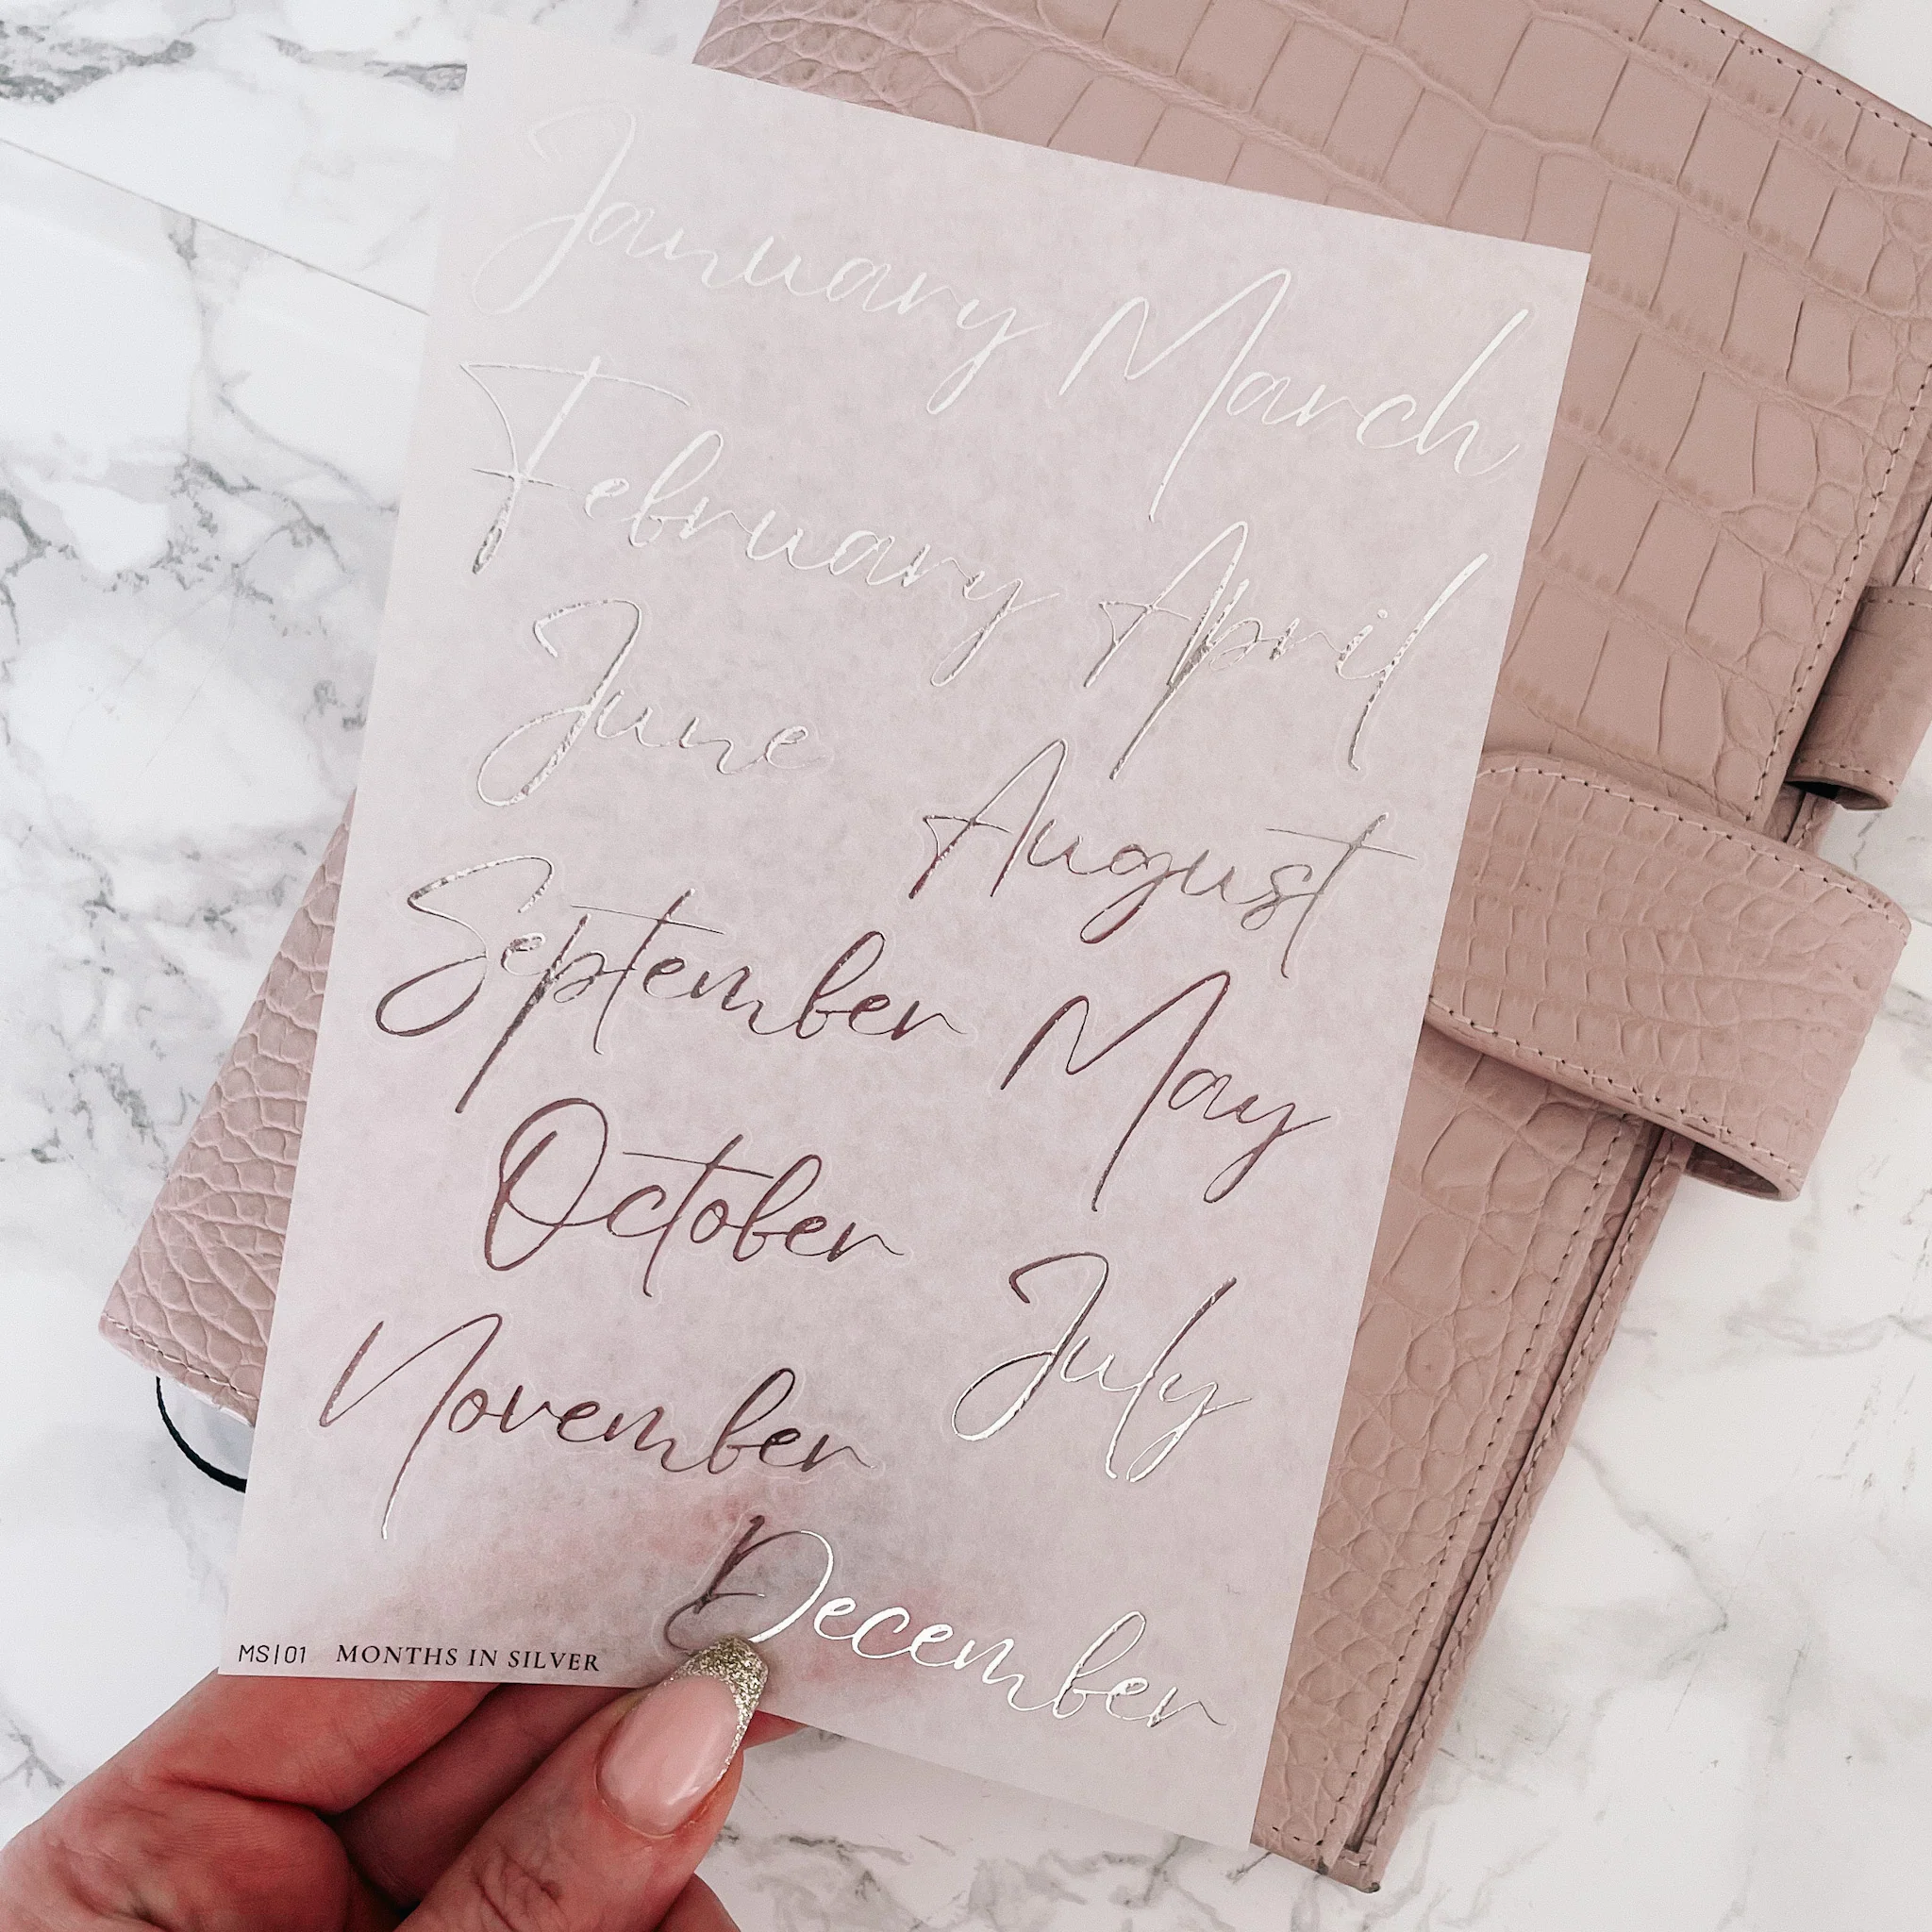 January March
February April
June August
September May
October July
November
December
MS|01 MONTHS IN SILVER